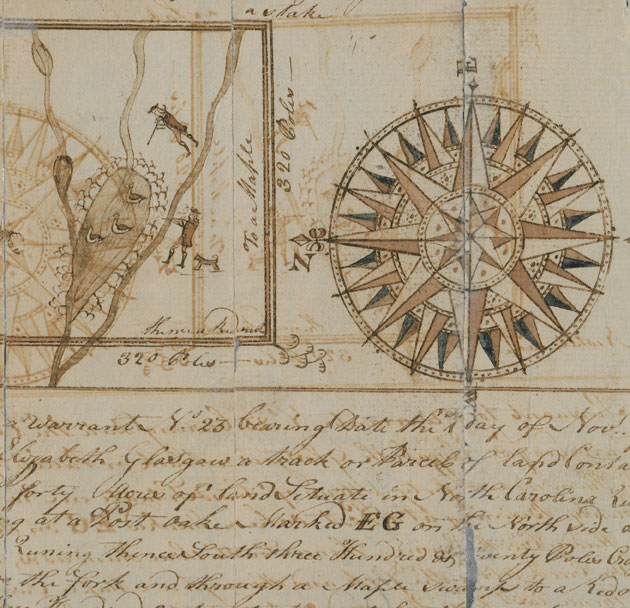 a Stake
E
320 Poles
To a Maple
N
thence a
320 Poles
W
a warrant No 23 bearing Date the day of Nov.
Elizabeth Glasgaw a track or Parcel of land Conta
forty of land Situate in North Carolina
g at a Post oake Marked EG on the North side o
Runing thence South three Hundred & twenty Poles Cro
the fork and through a Maple swamp to a Redo